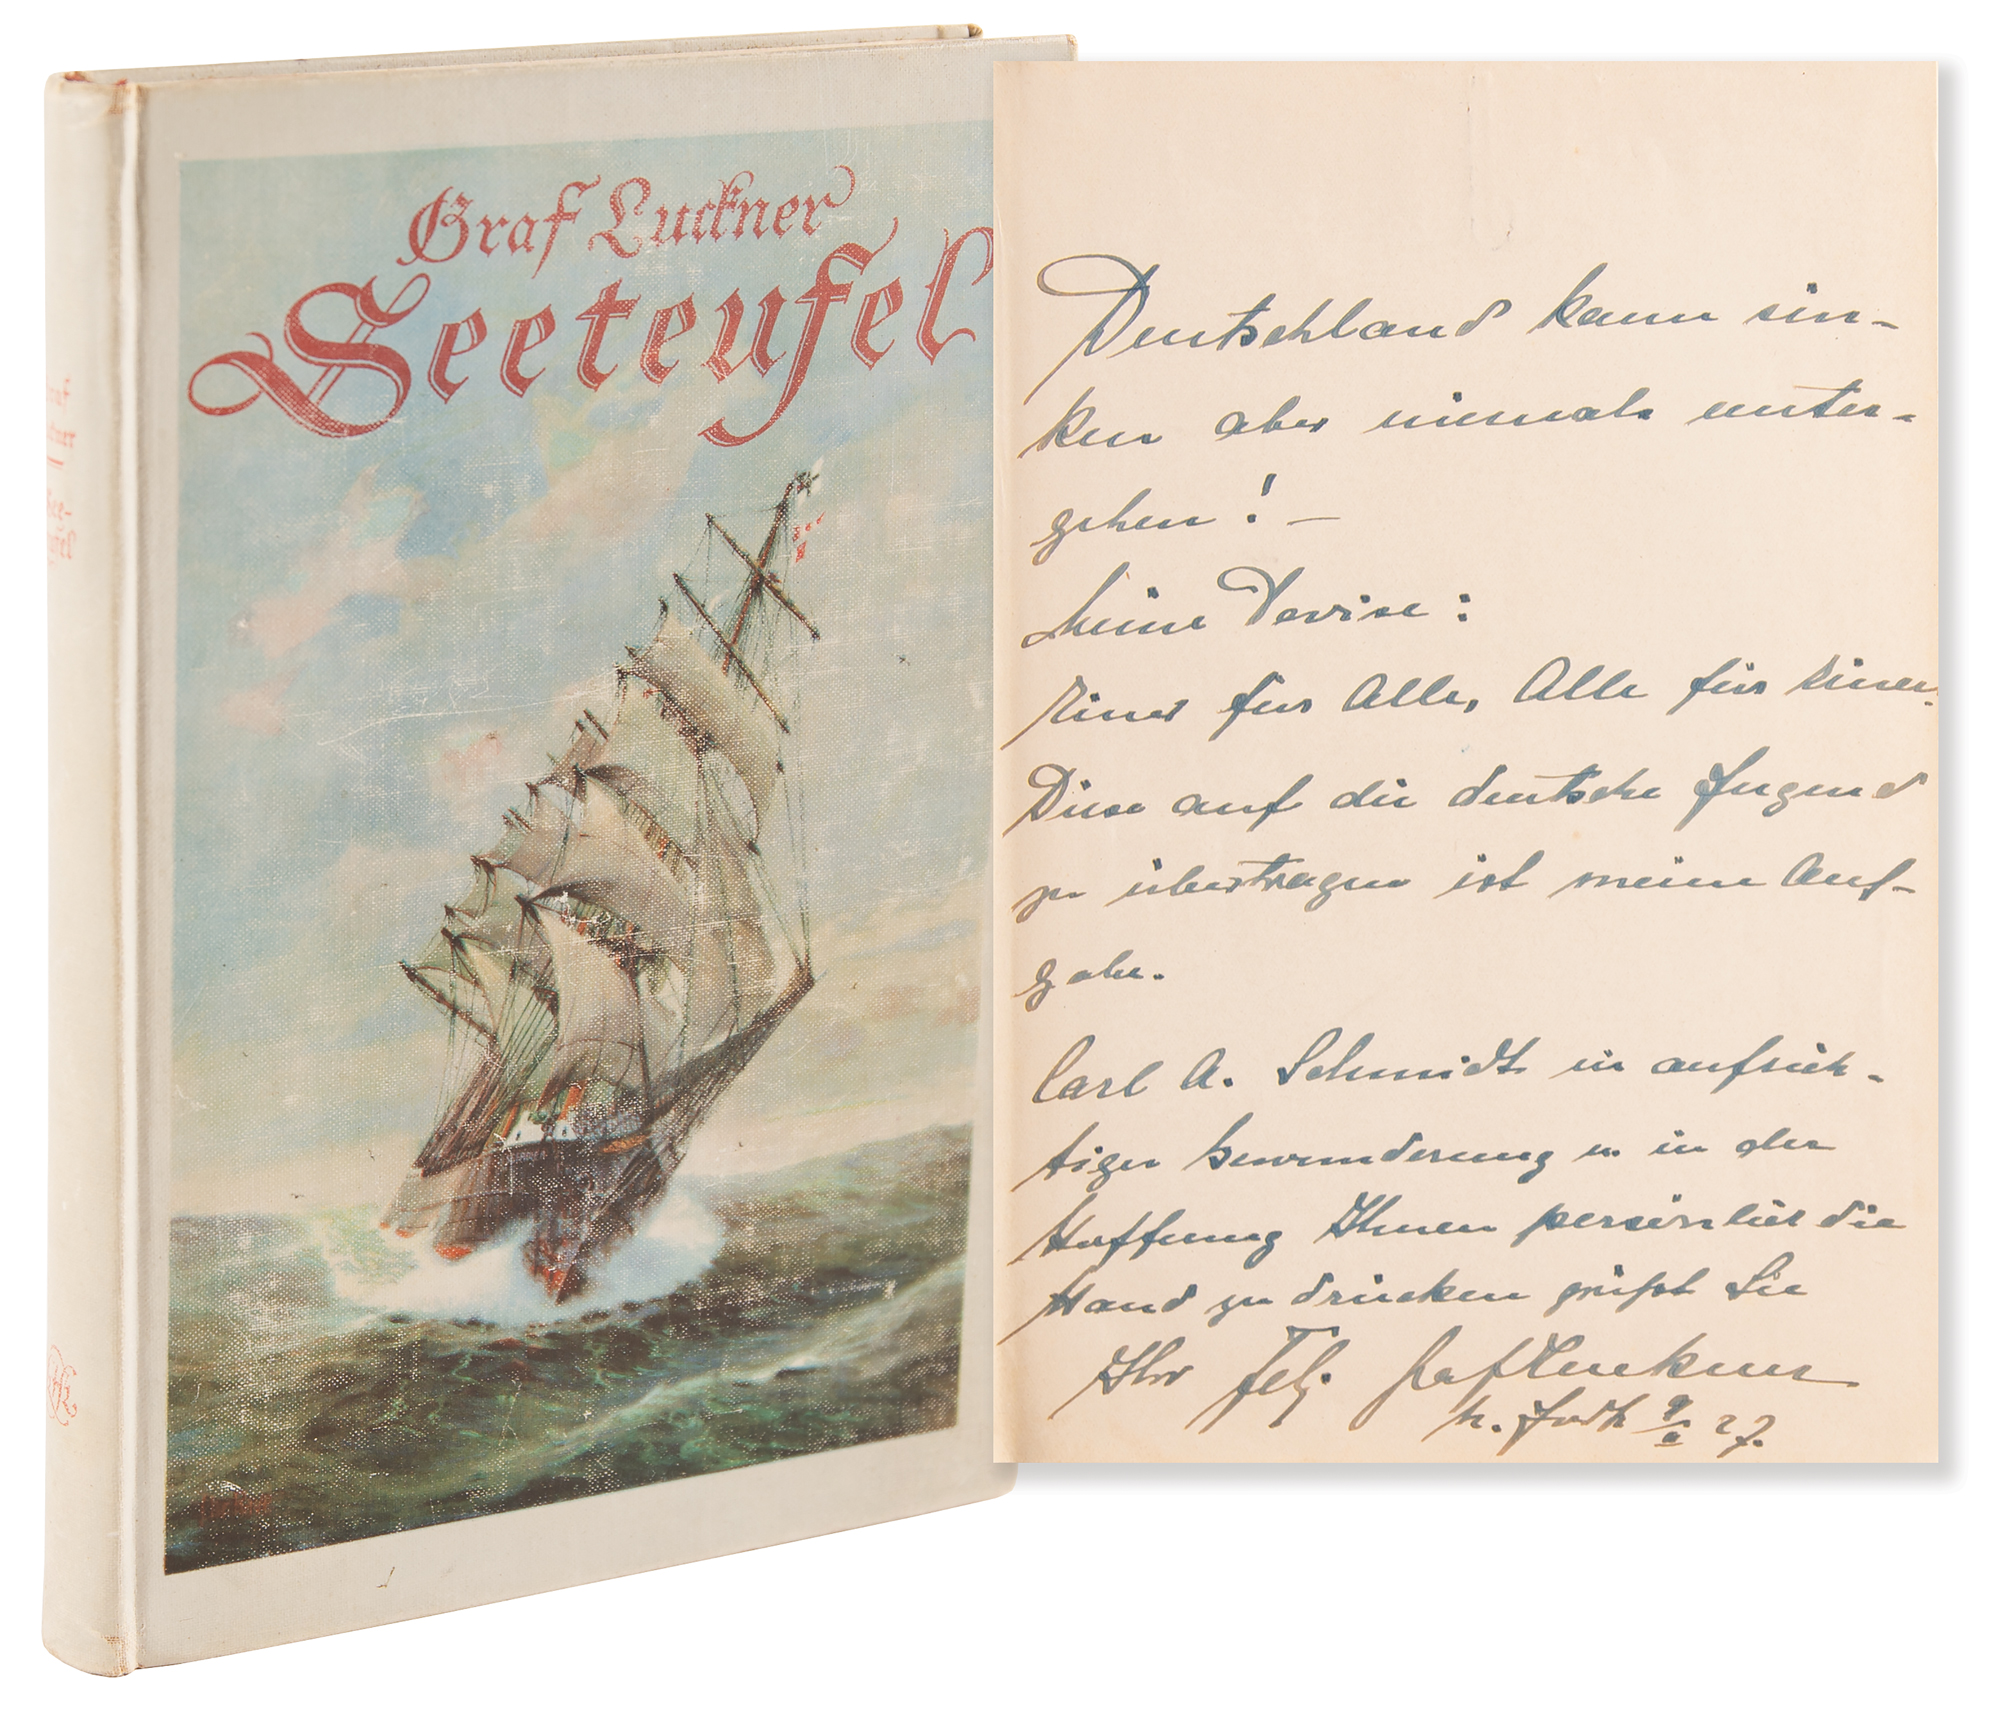 Graf Luckner
Seeteufel
Graf
Luckner
See-
teufel
Deutschland kann sin-
ken aber niemals unter-
gehen! –
Meine Devise:
Einer für Alle, Alle für Einen.
Diese auf die deutsche Jugend
zu übertragen ist meine Auf-
gabe.
Carl A. Schmidt in aufrich-
tiger Bewunderung u. in der
Hoffnung Ihnen persönlich die
Hand zu drücken grüßt Sie
Ihr Felix Graf Luckner
27.